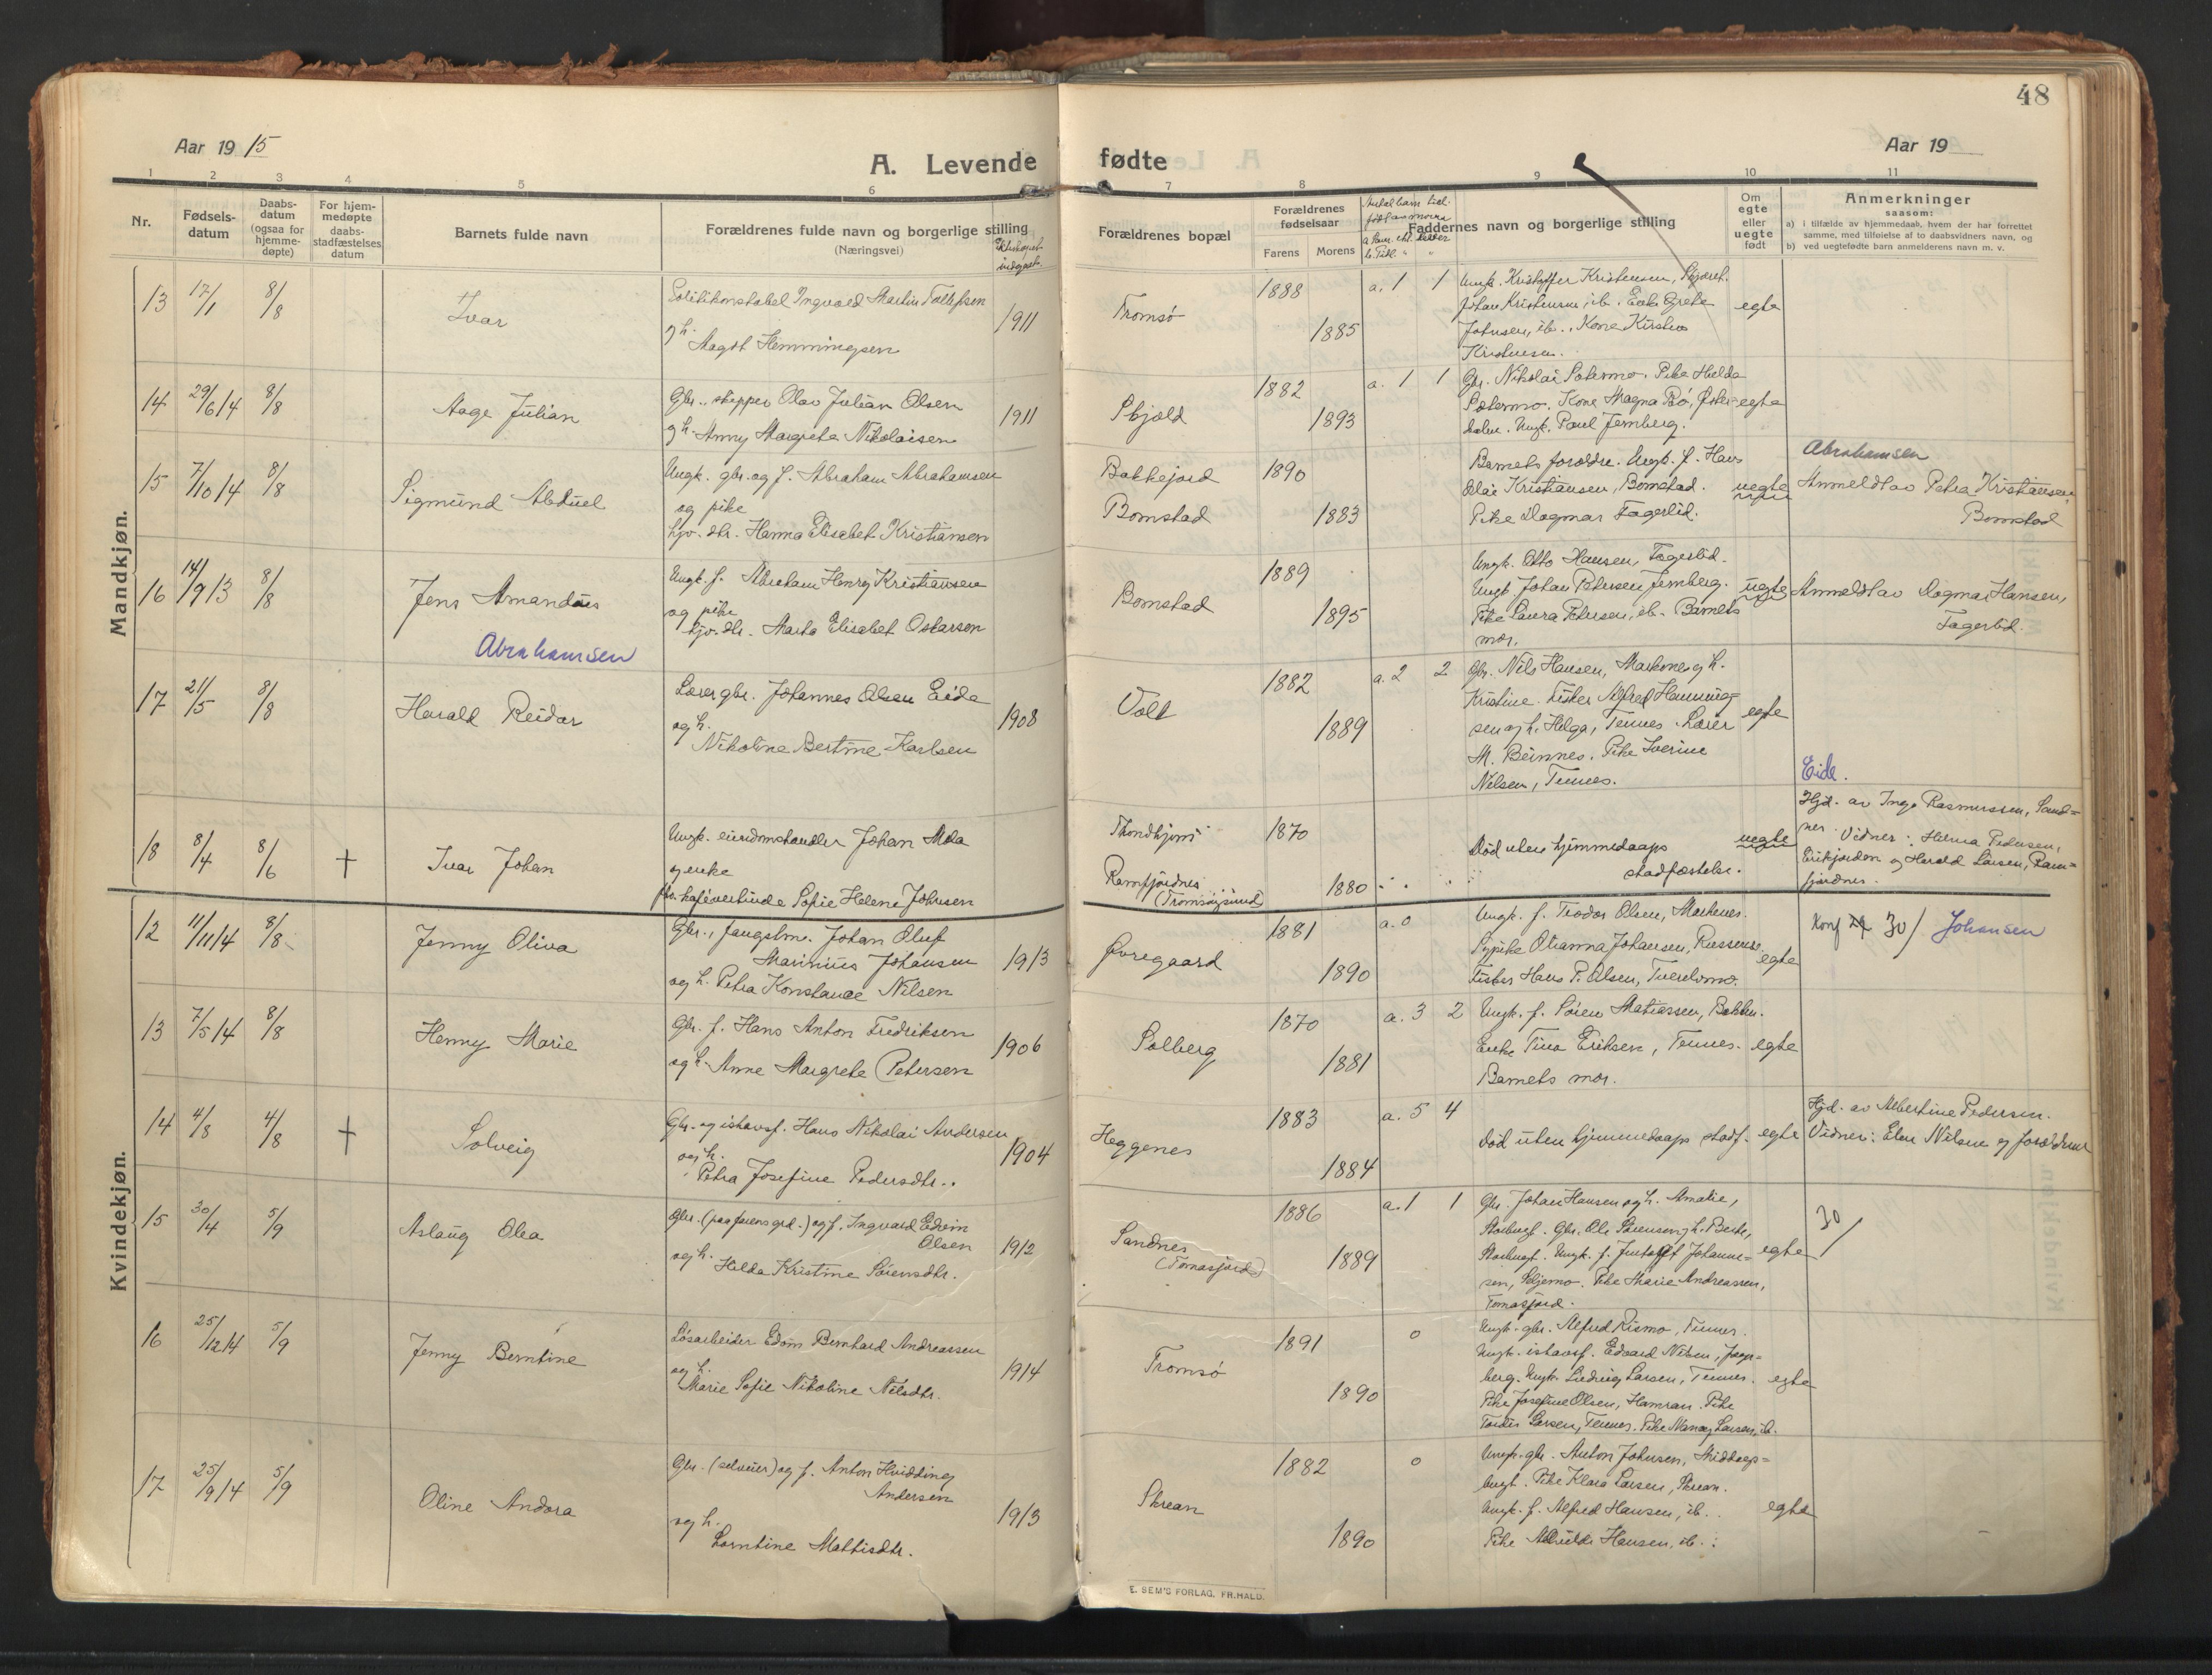 48
Aar 1915
A. Levende fødte
Aar 19
1 2 3 4 5 6 7 8 9 10 11
Nr.
Fødsels-
datum
Daabs-
datum
(ogsaa for
hjemme-
døpte)
For hjem-
medøpte
daabs-
stadfæstelses
datum
Barnets fulde navn
Forældrenes fulde navn og borgerlige stilling
(Næringsvei)
Forældrenes bopæl
Forældrenes
fødselsaar
Farens Morens
Faddernes navn og borgerlige stilling
Om
egte
eller
uegte
født
Anmerkninger
saasom:
a) i tilfælde av hjemmedaab, hvem der har forrettet
samme, med tilføielse af to daabsvidners navn, og
b) ved uegtefødte barn anmelderens navn m. v.
Mandkjøn.
13 17/1 8/8 Ivar
Ingvald Martin Tollefsen
og h. Magdt Hemmingsen
1911
Tromsø
1888
1885
a. 1 1
Ungk. Kristoffer Kristensen,
Johan Kristensen, ib.
Johnsen, ib., Kone
Kristensen.
egte
14 29/6 14 8/8 Aage Julian
Gbr., skipper Olav Julian Olsen
og h. Anny Margrete Nikolaisen
1911
Skjæld
1882
1893
a. 1 1
Gbr. Nikolai Sætermo. Pike Hilda
Sætermo. Kone Magna Bö,
Ungk. Paul Jernberg.
egte
15 7/10 14 8/8 Sigmund Abduel
Ungk. gbr. og f. Abraham Abrahamsen
og pike
hjv. dtr. Hanna Elisabet Kristiansen
Bakkejord
Bomstad
1890
1883
Barnets forældre. Ungk. f. Hans
Kristiansen, Bomstad.
Pike Dagmar Fagerlid.
uegte
Abrahamsen
Anmeldt av Petra Kristiansen,
Bomstad
16 14/9 13 8/8 Jens Amandus
Abrahamsen
Ungk. f. Abraham Henry Kristiansen
og pike
hjv. dtr. Marta Elisabet Oskarsen
Bomstad
1889
1895
Ungk. Otto Hansen, Fagerlid.
Ungk. Johan Petersen Jernberg.
Pike Laura Petersen, ib. Barnets
mor.
uegte
Anmeldt av Dagmar Hansen,
Fagerlid.
17 21/5 8/8 Harald Reidar
Lærer gbr. Johannes Olsen Eide
og h.
Nikoline Bertine Karlsen
1908
Vold
1882
1889
a. 2 2
Gbr. Nils Hansen, og h.
Kristine. Fisker Alfred Hemming=
sen og h. Helga, Tennes. Lærer
M. Beinnes. Pike Iverine
Nilsen, Tennes.
egte
Eide.
18 8/4 8/6 † Ivar Johan
Ungk. eiendomshandler Johan
og enke
Sofie Helene Johnsen
Trondhjem
Ramfjordnes
(Tromsøysund)
1870
1880
Død uten hjemmedaaps
stadfæstelse.
uegte
Hjd. av Inga Rasmussen, Sand=
nes. Vidner: Hilma Pedersen,
og Harald Larsen, Ram=
fjordnes.
Kvindekjøn.
12 11/11 14 8/8 Jenny Oliva
Gbr., fangstm. Johan Oluf
Marinius Johansen
og h. Petra Konstance Nilsen
1913
Øvregaard
1881
1890
a. 0
Ungk. f. Teodor Olsen,
Johansen,
Fisker Hans P. Olsen,
egte
Konf 30/ Johansen
13 7/5 14 8/8 Henny Marie
Gbr. f. Hans Anton Fredriksen
og h. Anne Margrete Petersen
1906
Solberg
1870
1881
a. 3 2
Ungk. f. Sören Matiassen, Bakken.
Enke Tina Eriksen, Tennes.
Barnets mor.
egte
14 4/8 4/8 † Solveig
Gbr. og ishavsf. Hans Nikolai Andersen
og h.
Petra Josefine Pedersdtr.
1904
Heggenes
1883
1884
a. 5 4
Død uten hjemmedaaps stadf.
egte
Hjd. av Albertine Pedersen.
Vidner: Elen Nilsen og forældrene
15 30/4 5/9 Aslaug Olea
Gbr. (paa farens grd.) og f. Ingvard Edvin
Olsen
og h. Hilda Kristine Sörensdtr.
1912
Sandnes
(Tomasjord)
1886
1889
a. 1 1
Gbr. Johan Hansen og h. Amalie,
Gbr. Ole Sörensen og h. Berte,
Ungk. f. Johanne=
sen, Pike Marie Andreassen,
Tomasjord.
egte
30/
16 25/12 14 5/9 Jenny Berntine
Løsarbeider Edom Bernhard Andreassen
og h.
Marie Sofie Nikoline Nilsdtr.
1914
Tromsø
1891
1890
0
Ungk. gbr. Alfred Rismo, Tennes.
Ungk. ishavsf. Edvard Nilsen,
berg. Ungk. Ludvig Larsen, Tennes.
Pike Josefine Olsen, Hamran. Pike
Larsen, Tennes. Pike Larsen, ib.
egte
17 25/9 14 5/9 Oline Andora
Gbr. (selveier) og f. Anton Hvidding
Andersen
og h.
Lorntine Mattisdtr.
1913
Skrean
1882
1890
0
Ungk. gbr. Anton Johnsen,
Pike Klara Larsen, Skrean.
Ungk. f. Alfred Hansen, ib.
Pike Hansen, ib.
egte
E. SEM'S FORLAG, FR.HALD.